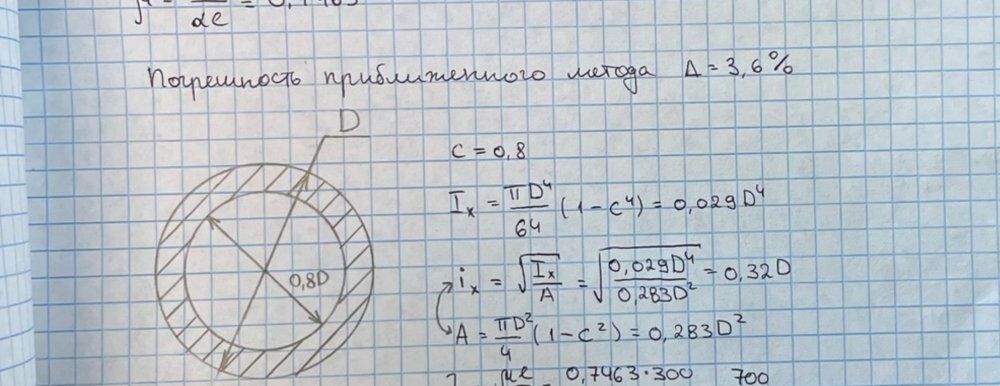 αl
Погрешность приближенного метода Δ = 3,6%
D
c = 0,8
Iₓ = πD⁴/64 (1 − c⁴) = 0,029D⁴
0,8D
iₓ = √(Iₓ/A) = √(0,029D⁴/0,283D²) = 0,32D
A = πD²/4 (1 − c²) = 0,283D²
μl 0,7463·300 700